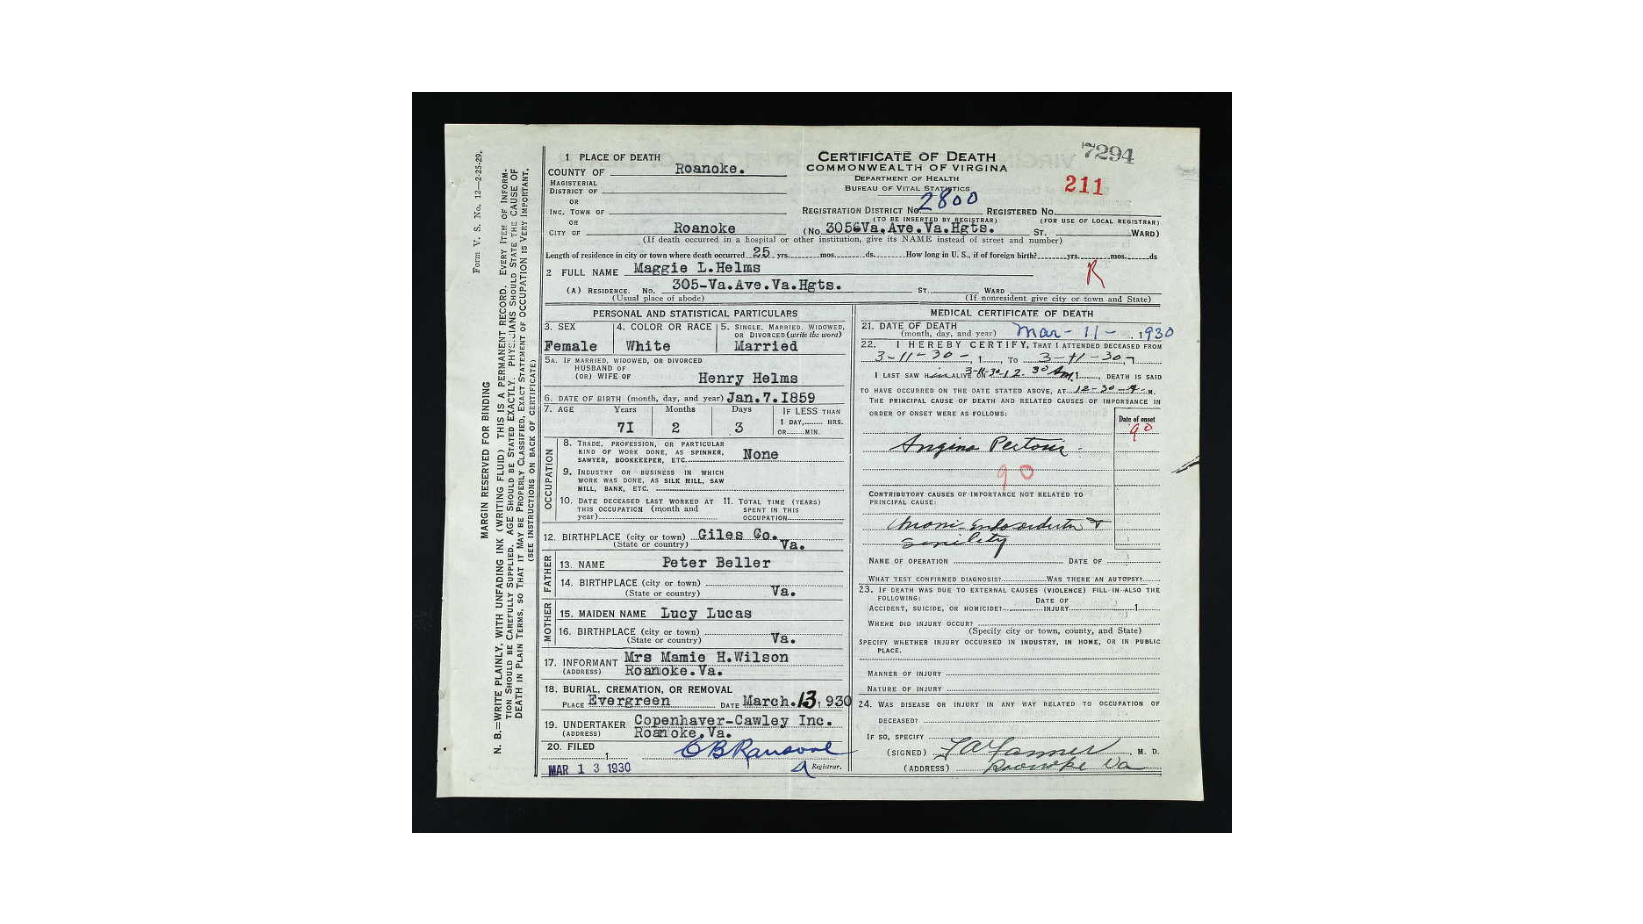 Form V. S. No. 12—2-25-29.
MARGIN RESERVED FOR BINDING
N. B.—WRITE PLAINLY, WITH UNFADING INK (WRITING FLUID) THIS IS A PERMANENT RECORD. EVERY ITEM OF INFORM-
TION SHOULD BE CAREFULLY SUPPLIED. AGE SHOULD BE STATED EXACTLY. PHYSICIANS SHOULD STATE THE CAUSE OF
DEATH IN PLAIN TERMS, SO THAT IT MAY BE PROPERLY CLASSIFIED. EXACT STATEMENT OF OCCUPATION IS VERY IMPORTANT.
(SEE INSTRUCTIONS ON BACK OF CERTIFICATE)
7294
CERTIFICATE OF DEATH
COMMONWEALTH OF VIRGINIA
DEPARTMENT OF HEALTH
BUREAU OF VITAL STATISTICS
211
1 PLACE OF DEATH
COUNTY OF Roanoke.
MAGISTERIAL
DISTRICT OF
OR
INC. TOWN OF
OR
CITY OF Roanoke
REGISTRATION DISTRICT No. 2800 REGISTERED No.
(TO BE INSERTED BY REGISTRAR) (FOR USE OF LOCAL REGISTRAR)
(No. 305 Va.Ave.Va.Hgts. ST. WARD)
(If death occurred in a hospital or other institution, give its NAME instead of street and number)
Length of residence in city or town where death occurred 25 yrs. mos. ds. How long in U. S., if of foreign birth? yrs. mos. ds
2 FULL NAME Maggie L.Helms
R
(A) RESIDENCE. No. 305-Va.Ave.Va.Hgts. ST. WARD
(Usual place of abode) (If nonresident give city or town and State)
PERSONAL AND STATISTICAL PARTICULARS
3. SEX 4. COLOR OR RACE 5. SINGLE, MARRIED, WIDOWED,
OR DIVORCED (write the word)
Female White Married
5A. IF MARRIED, WIDOWED, OR DIVORCED
HUSBAND OF
(OR) WIFE OF Henry Helms
6. DATE OF BIRTH (month, day, and year) Jan.7.1859
7. AGE Years Months Days IF LESS THAN
1 DAY, HRS.
OR MIN.
71 2 3
OCCUPATION
8. TRADE, PROFESSION, OR PARTICULAR
KIND OF WORK DONE, AS SPINNER,
SAWYER, BOOKKEEPER, ETC. None
9. INDUSTRY OR BUSINESS IN WHICH
WORK WAS DONE, AS SILK MILL, SAW
MILL, BANK, ETC.
10. DATE DECEASED LAST WORKED AT
THIS OCCUPATION (month and
year)
11. TOTAL TIME (YEARS)
SPENT IN THIS
OCCUPATION
12. BIRTHPLACE (city or town) Giles Co.
(State or country) Va.
FATHER
13. NAME Peter Beller
14. BIRTHPLACE (city or town)
(State or country) Va.
MOTHER
15. MAIDEN NAME Lucy Lucas
16. BIRTHPLACE (city or town)
(State or country) Va.
17. INFORMANT Mrs Mamie H.Wilson
(ADDRESS) Roanoke.Va.
18. BURIAL, CREMATION, OR REMOVAL
PLACE Evergreen DATE March.13, 1930
19. UNDERTAKER Copenhaver-Cawley Inc.
(ADDRESS) Roanoke.Va.
20. FILED
MAR 13 1930
Registrar.
MEDICAL CERTIFICATE OF DEATH
21. DATE OF DEATH
(month, day, and year) Mar-11-, 1930
22. I HEREBY CERTIFY, THAT I ATTENDED DECEASED FROM
3-11-30-, 1 , TO 3-11-30,
I LAST SAW H ALIVE ON 3-11-30 12.30 AM, DEATH IS SAID
TO HAVE OCCURRED ON THE DATE STATED ABOVE, AT 12-30-A. M.
THE PRINCIPAL CAUSE OF DEATH AND RELATED CAUSES OF IMPORTANCE IN
ORDER OF ONSET WERE AS FOLLOWS:
Date of onset
90
Angina Pectoris
90
CONTRIBUTORY CAUSES OF IMPORTANCE NOT RELATED TO
PRINCIPAL CAUSE:
NAME OF OPERATION DATE OF
WHAT TEST CONFIRMED DIAGNOSIS? WAS THERE AN AUTOPSY?
23. IF DEATH WAS DUE TO EXTERNAL CAUSES (VIOLENCE) FILL IN ALSO THE
FOLLOWING:
ACCIDENT, SUICIDE, OR HOMICIDE? DATE OF INJURY 1
WHERE DID INJURY OCCUR?
(Specify city or town, county, and State)
SPECIFY WHETHER INJURY OCCURRED IN INDUSTRY, IN HOME, OR IN PUBLIC
PLACE.
MANNER OF INJURY
NATURE OF INJURY
24. WAS DISEASE OR INJURY IN ANY WAY RELATED TO OCCUPATION OF
DECEASED?
IF SO, SPECIFY
(SIGNED) , M. D.
(ADDRESS) Roanoke Va